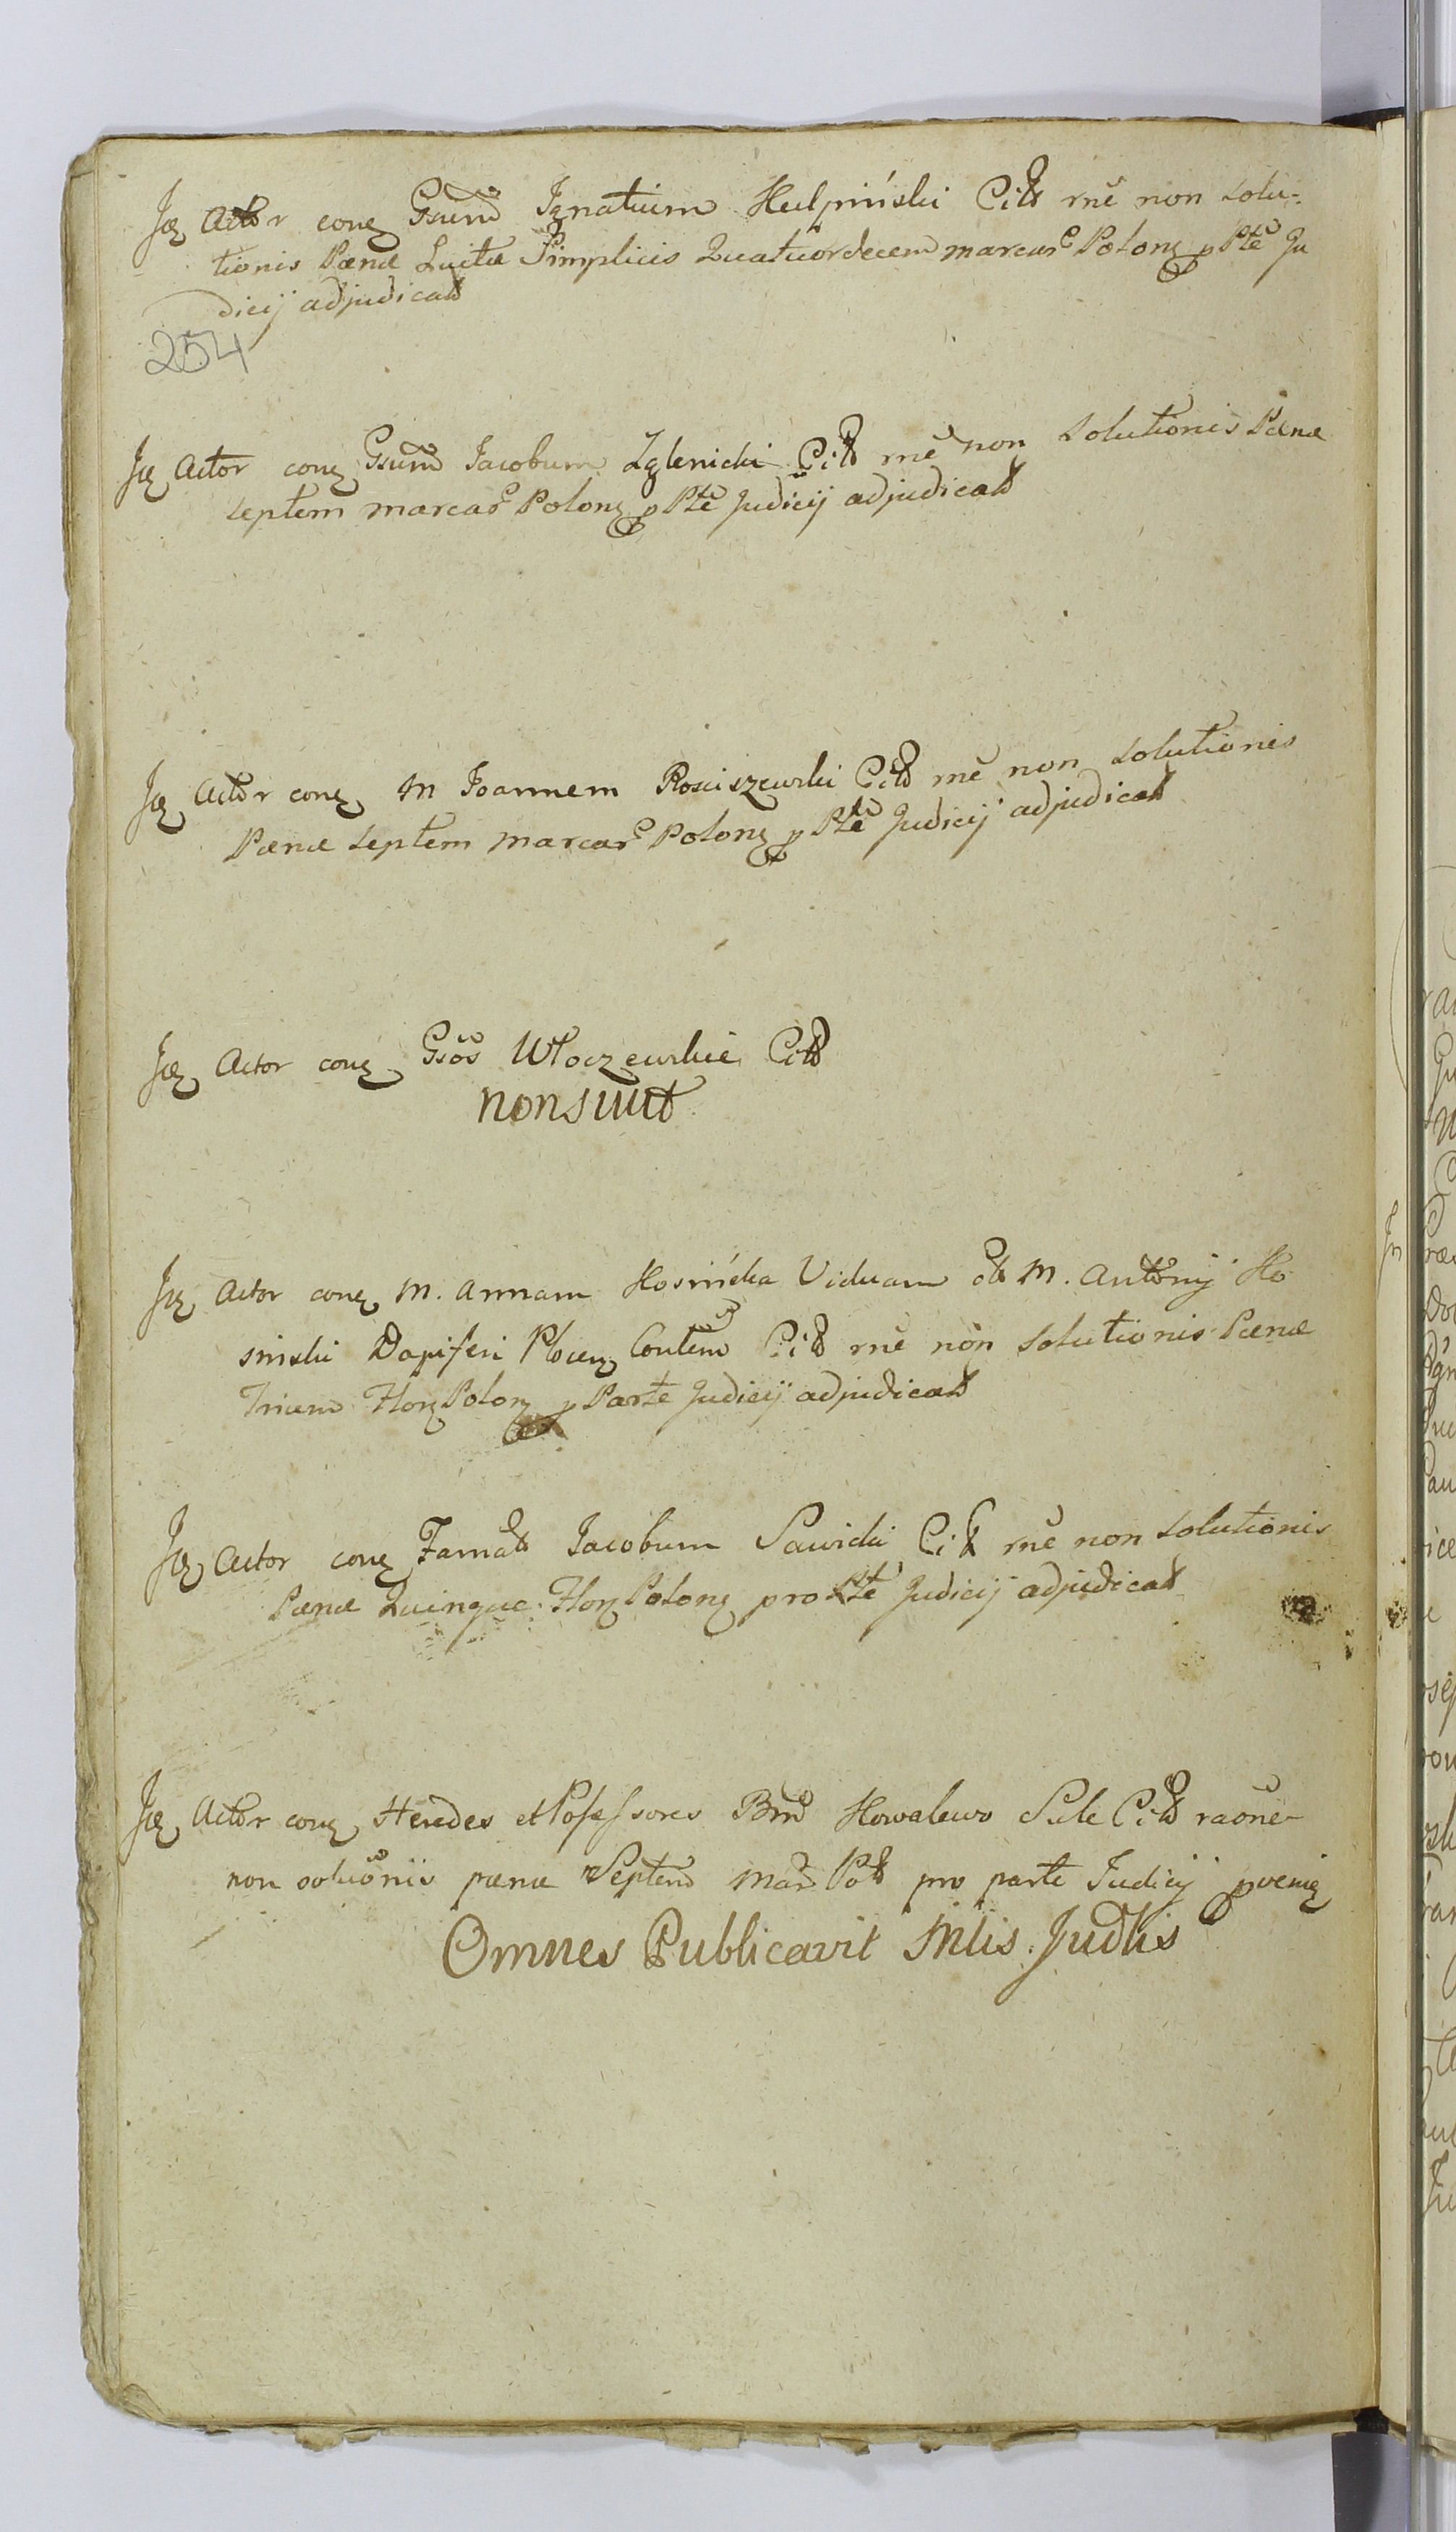 Jtz Actor conz Gsum Ignatium Kulpiński Citt rne non solu-
tionis Pænæ Luitæ Simplicis Quatuordecem marcar Polonz p Pte Ju
dicij adjudicatt
254
Jtz Actor conz Gsum Jacobum Zglenicki Citt rne non solutionis Pænæ
septem marcar Polonz p Pte Judicij adjudicatt
Jtz Actor conz M Joannem Rosciszewski Citt rne non solutionis
Pænæ septem marcar Polonz p Pte Judicij adjudicatt
Jtz Actor conz Gsos Włoczewskie Citt
non sunt
Jtz Actor conz M. Annam Kosińska Viduam ott M. Antonij Ko
sinski Dapiferi Plocenz Contem Citt rne non solutionis Pænæ
Trium Florz Polonz p Parte Judicij adjudicatt
Jtz Actor conz Famatt Jacobum Sawicki Citt rne non solutionis
Pænæ Quinque Florz Polonz pro Pte Judicij adjudicatt
Jtz Actor conz Heredes et Possessores Bnrm Kowalewo Citt raone
non soluonis pænæ Septem Mar Pott pro parte Judicij pveniz
Omnes Publicavit Mlis Judlis